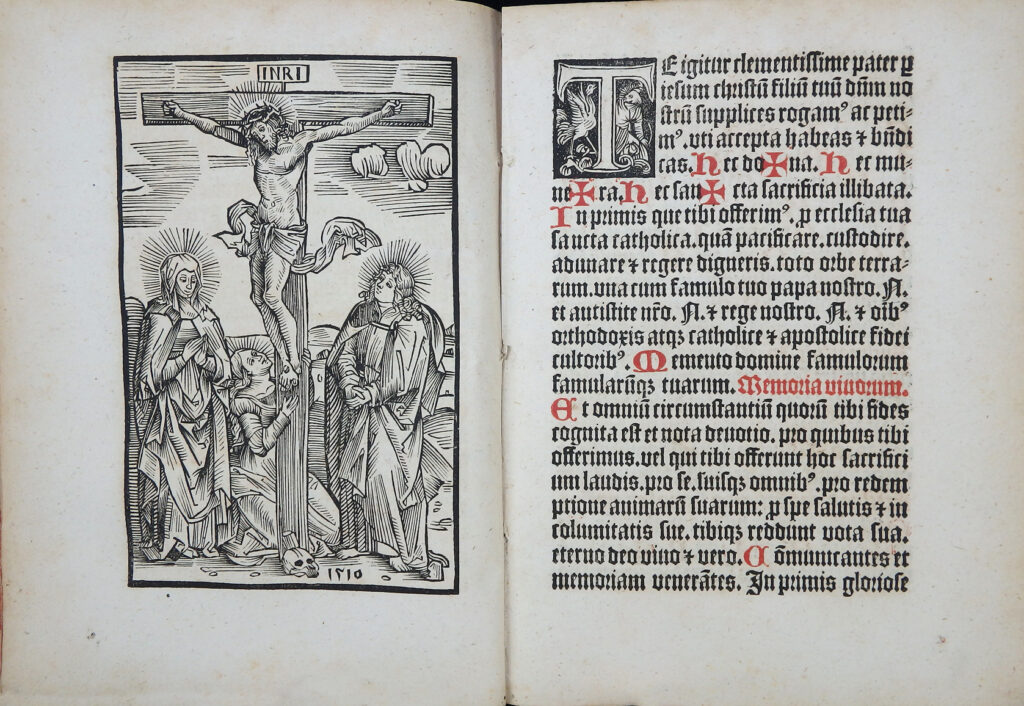 INRI
1510
TE igitur clementissime pater ꝑ
iesum christū filiū tuū dn̄m no
strū supplices rogamꝰ ac peti⸗
mꝰ. vti accepta habeas ⁊ bn̄di
cas. Hec do✠na. Hec mu⸗
ne✠ra. Hec san✠cta sacrificia illibata.
In primis que tibi offerimꝰ. ꝓ ecclesia tua
sancta catholica. quā pacificare. custodire.
adunare ⁊ regere digneris. toto orbe terra⸗
rum. vna cum famulo tuo papa nostro. N.
et antistite nr̄o. N. ⁊ rege nostro. N. ⁊ oīb
ꝰ
orthodoxis atqꝫ catholice ⁊ apostolice fidei
cultoribꝰ. Memento domine famulorum
famularūqꝫ tuarum. Memoria viuorum.
Et omniū circumstantiū quorū tibi fides
cognita est et nota deuotio. pro quibus tibi
offerimus. vel qui tibi offerunt hoc sacrifici
um laudis. pro se. suisqꝫ omnibꝰ. pro redem
ptione animarū suarum: ꝓ spe salutis ⁊ in
columitatis sue. tibiqꝫ reddunt vota sua.
eterno deo viuo ⁊ vero. Cōmunicantes et
memoriam venerātes. In primis gloriose